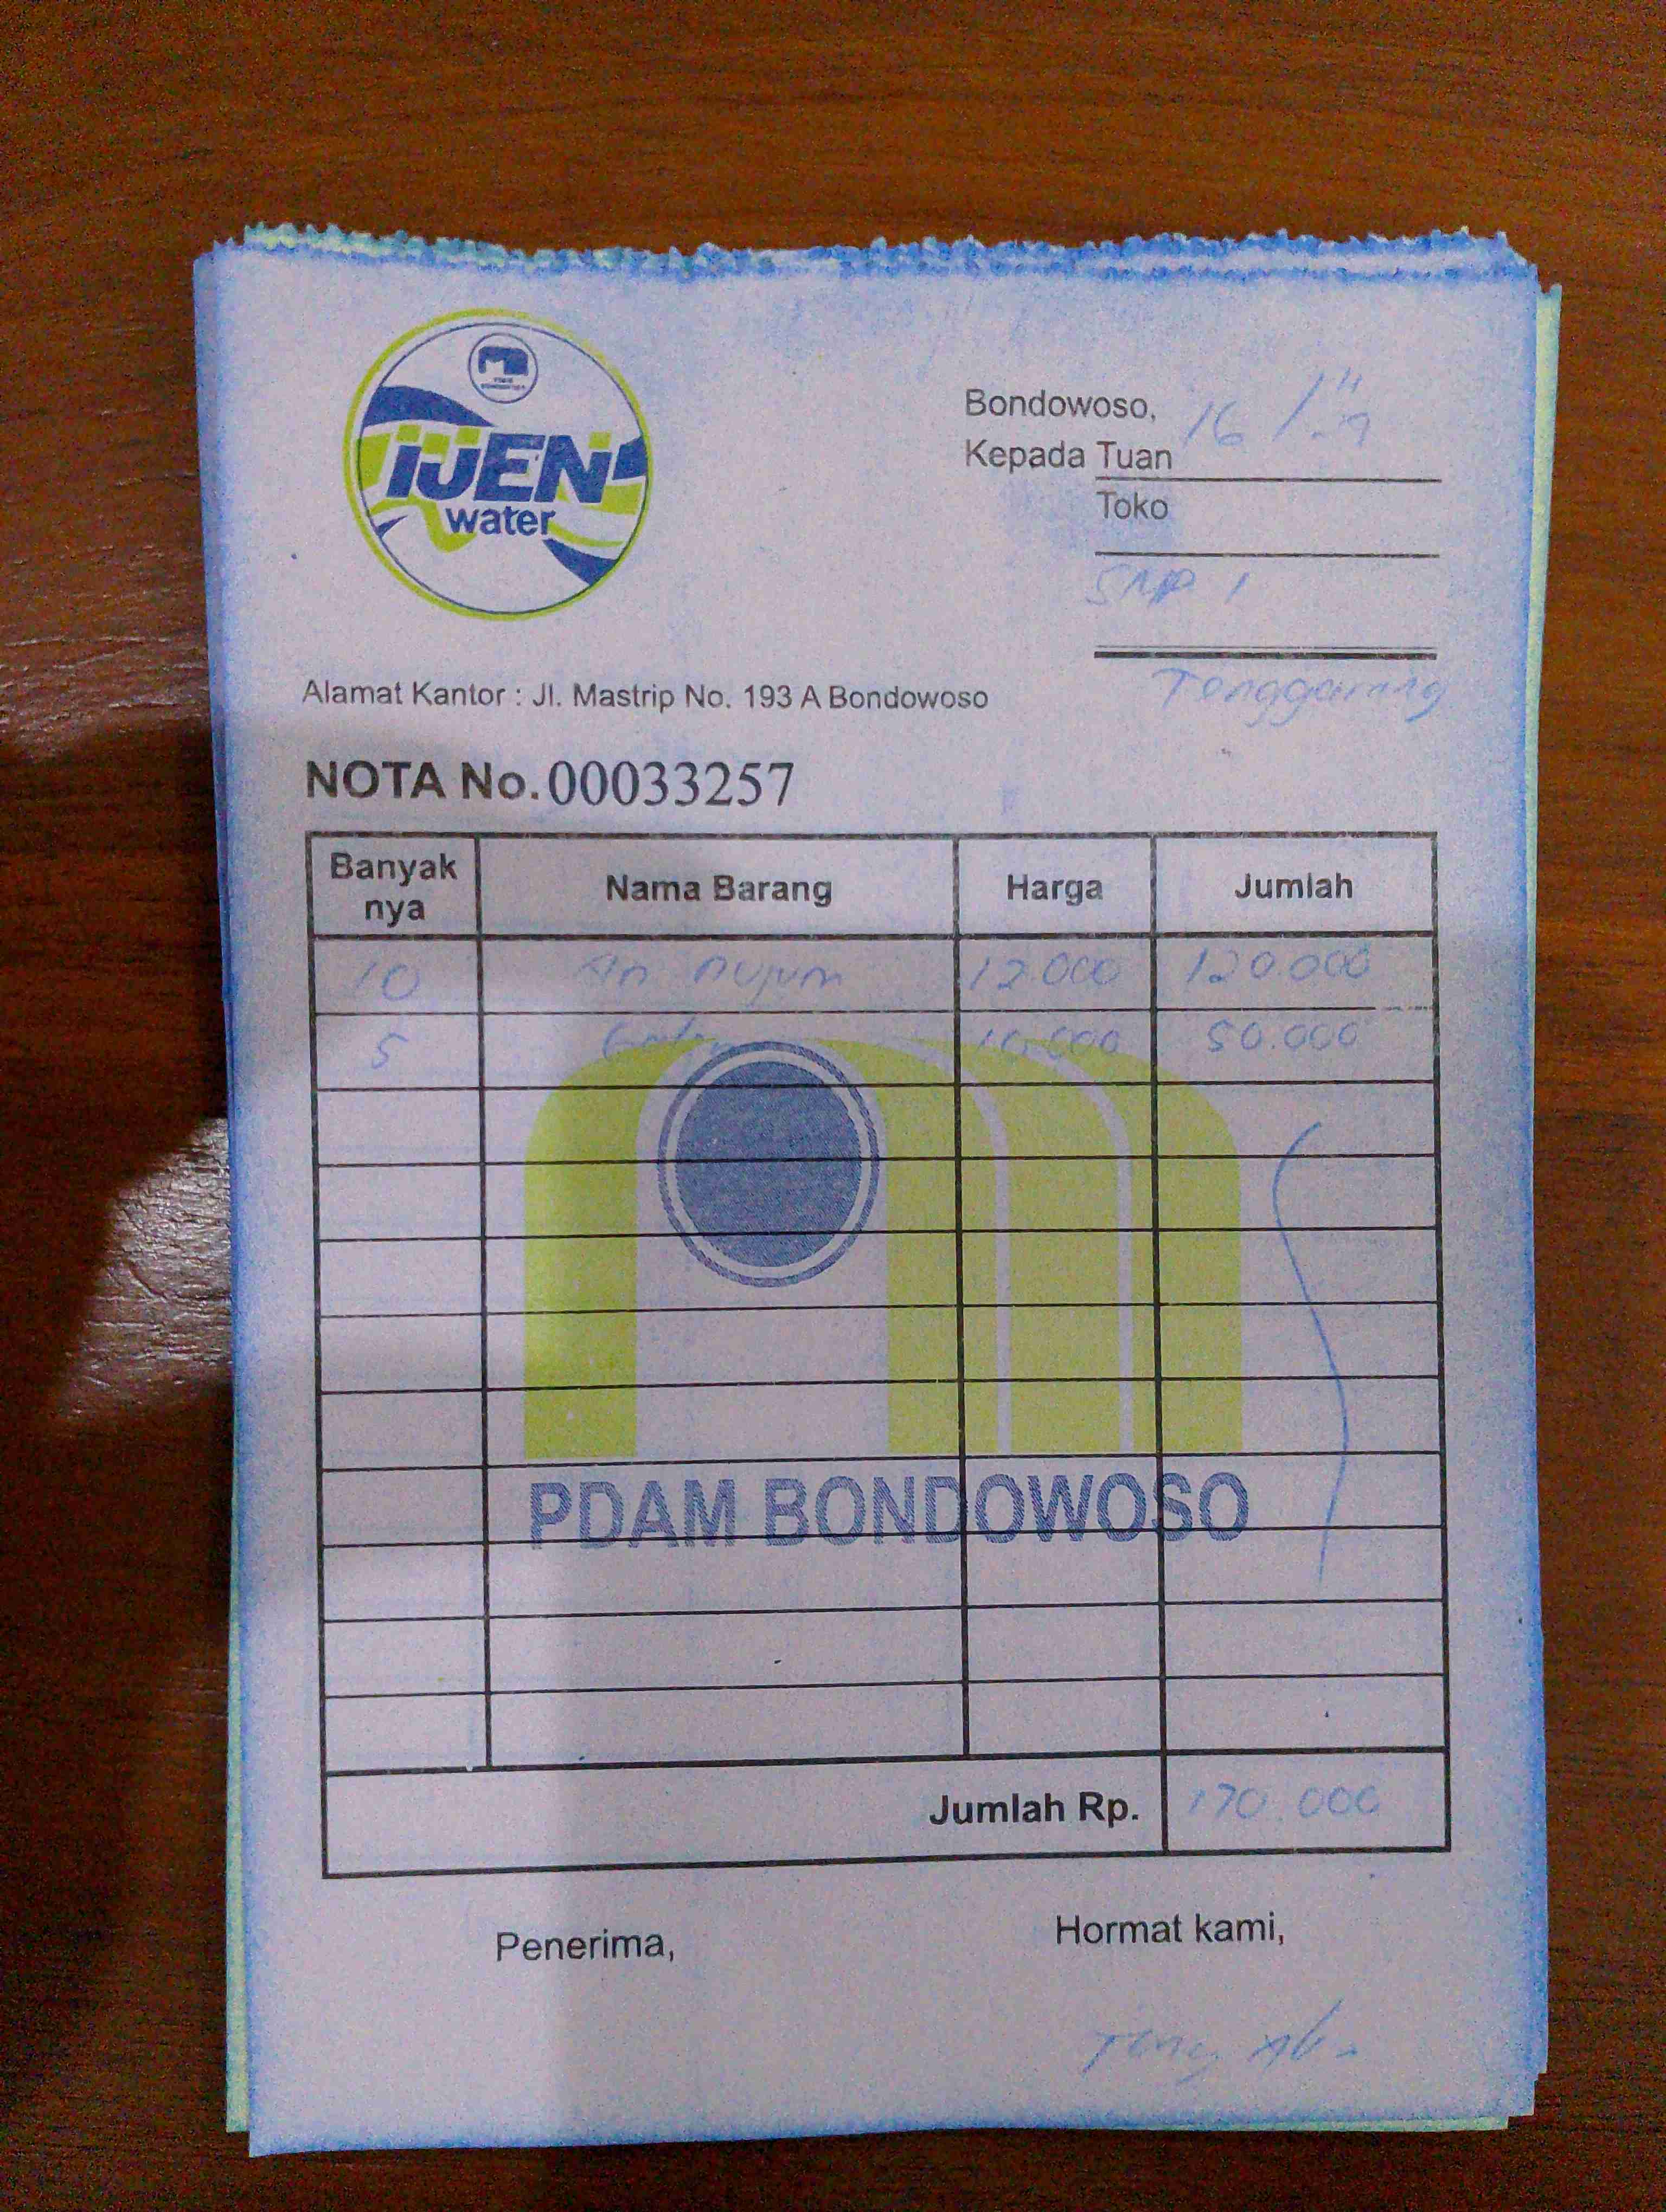 IJEN
water
Bondowoso, 16 /
Kepada Tuan
Toko
SMP 1
Tenggarang
Alamat Kantor : Jl. Mastrip No. 193 A Bondowoso
NOTA No. 00033257
Banyak nya Nama Barang Harga Jumlah
10 An nujum 12.000 120.000
5 10.000 50.000
PDAM BONDOWOSO
Jumlah Rp. 170.000
Penerima, Hormat kami,